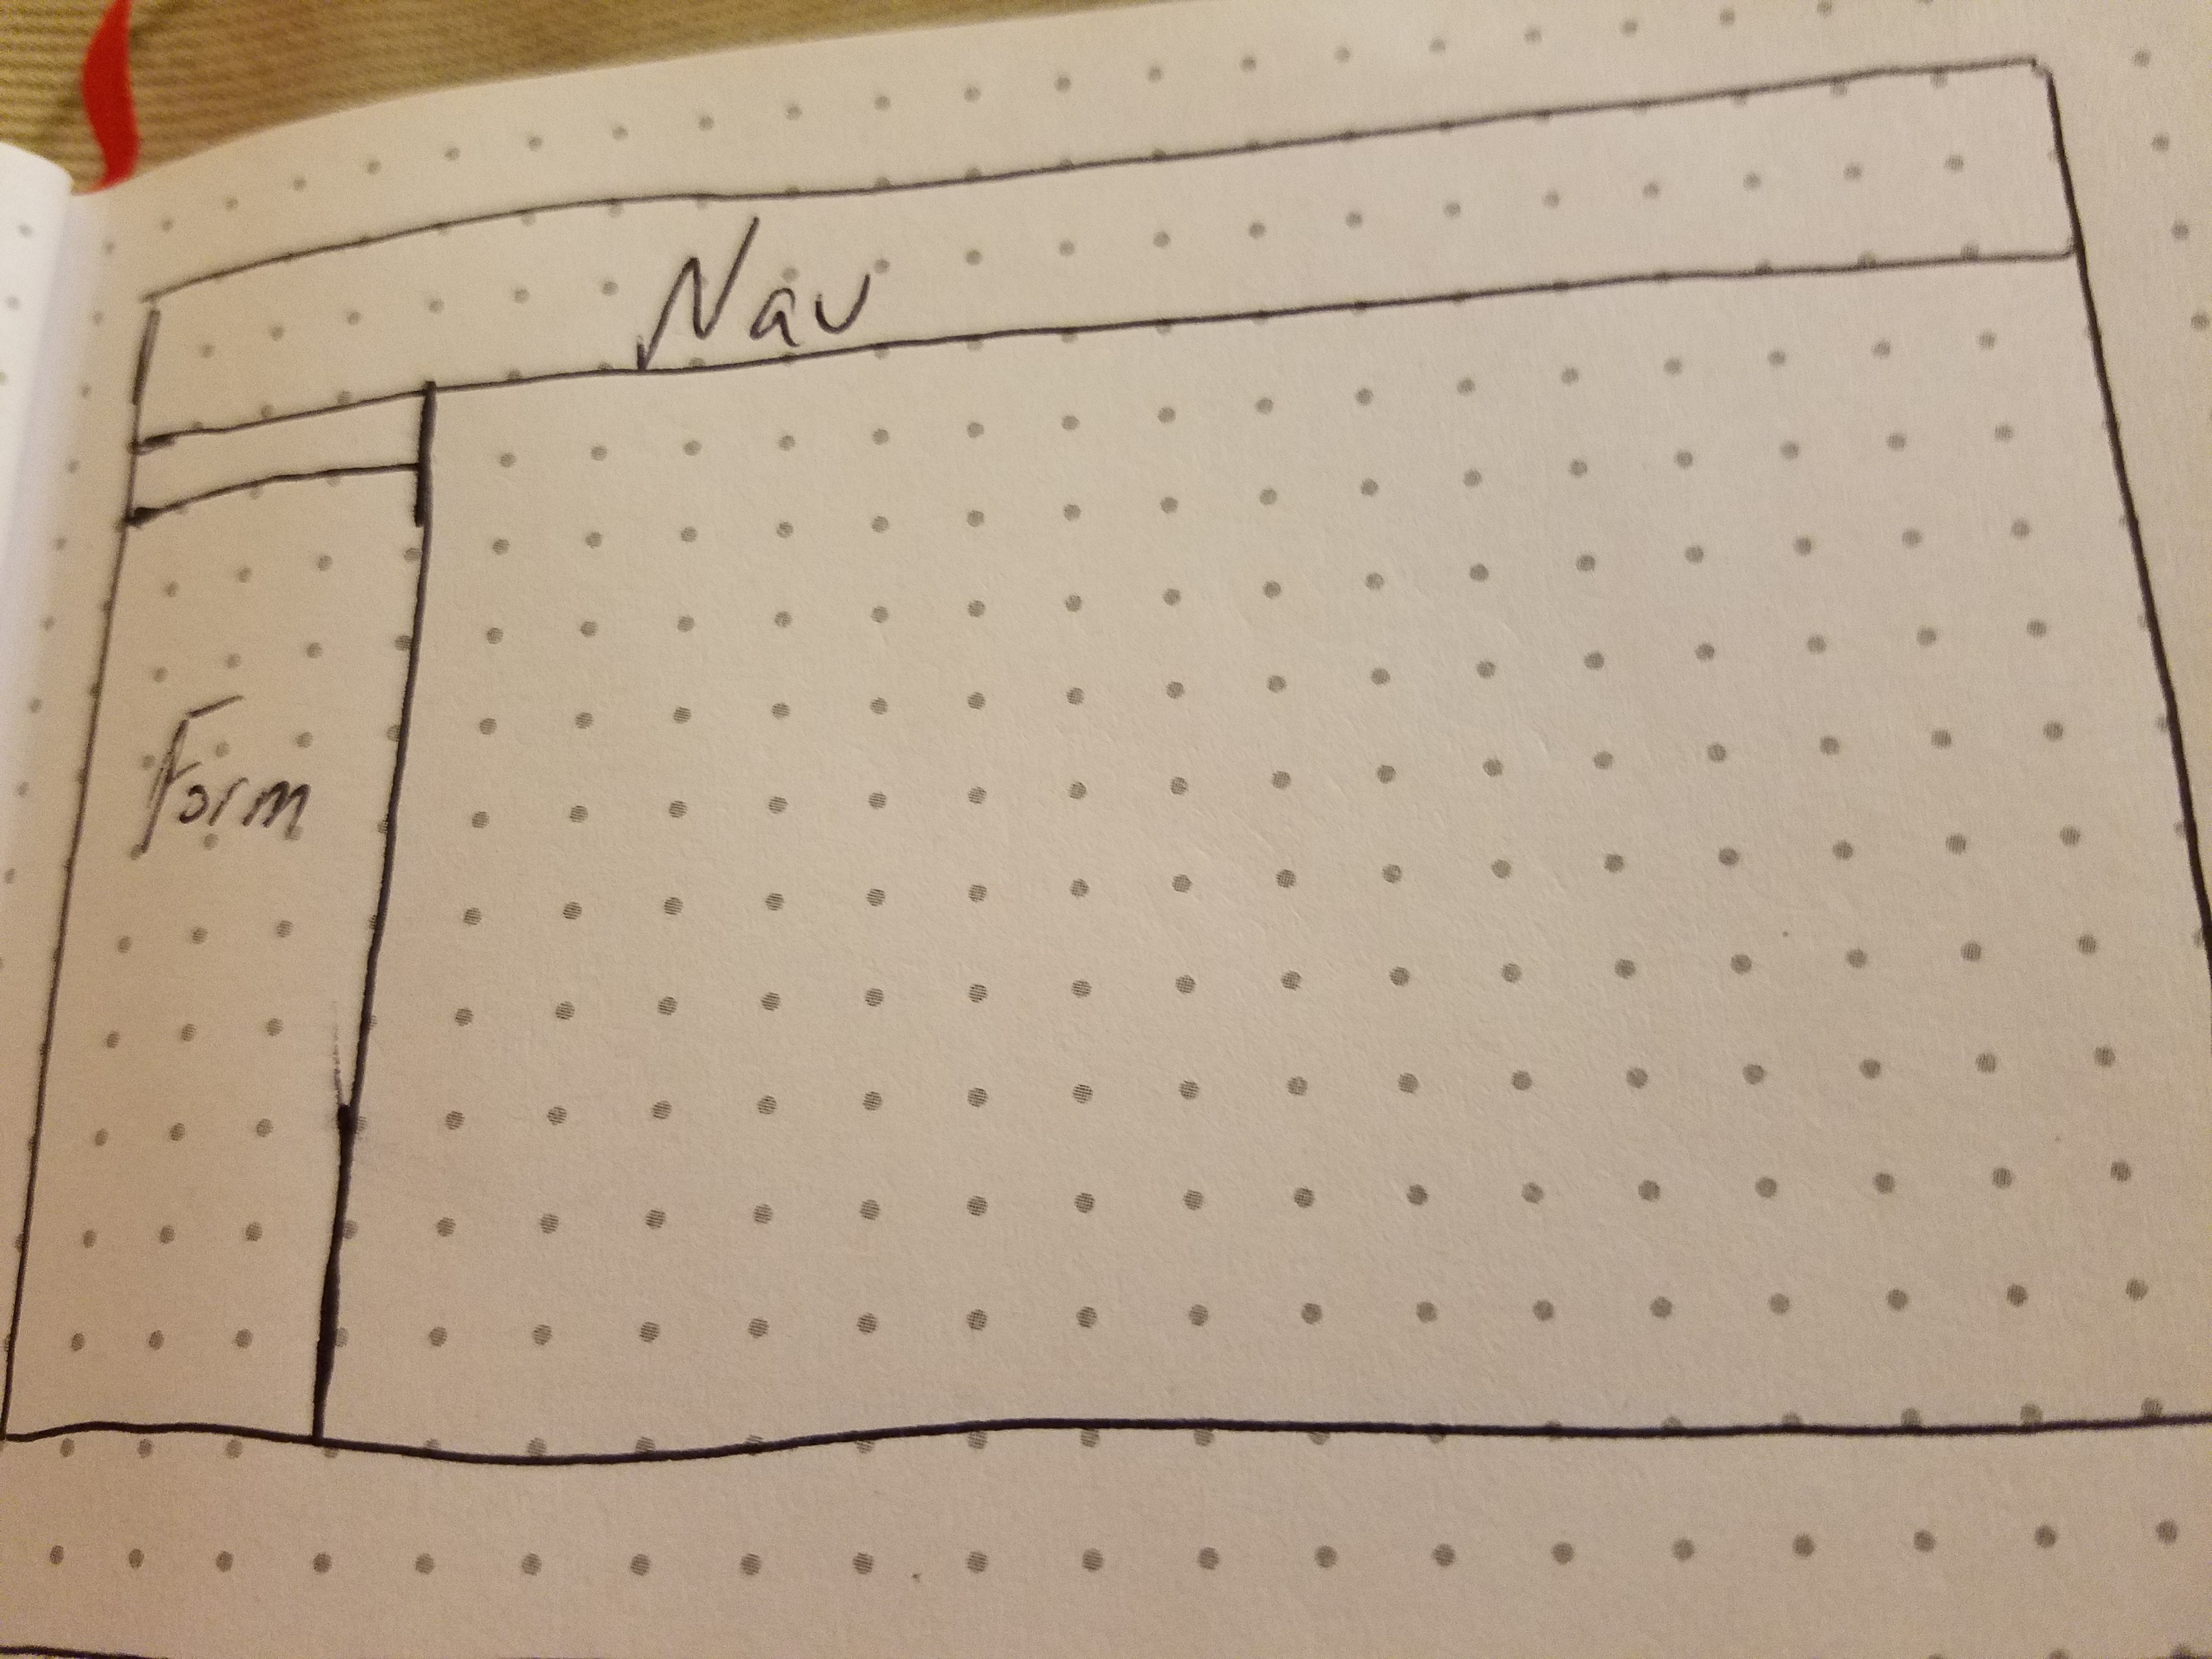 Nav
Form